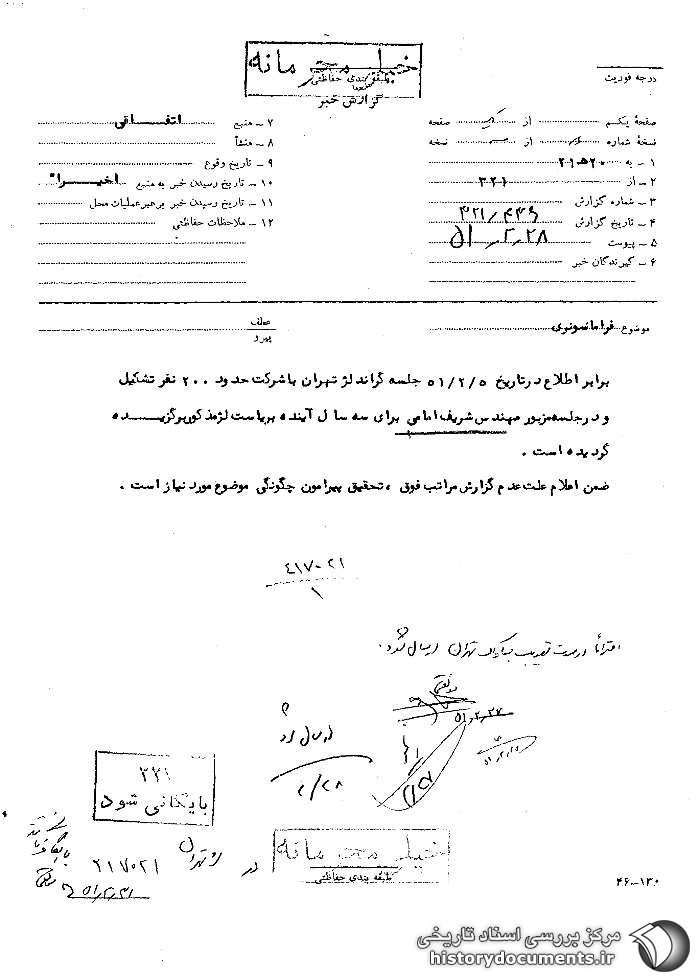 خیلی محرمانه
طبقه بندی حفاظتی
گزارش خبر
درجه فوریت
صفحهٔ یکم از یک صفحه
نسخهٔ شماره از نسخه
۱ - به ۲۱۵۲۰
۲ - از ۳۲۱
۳ - شماره گزارش ۳۲۱/۴۴۶
۴ - تاریخ گزارش ۵۱/۲/۲۸
۵ - پیوست
۶ - گیرندگان خبر
۷ - منبع اتفاقی
۸ - منشأ
۹ - تاریخ وقوع
۱۰ - تاریخ رسیدن خبر به منبع اخیراً
۱۱ - تاریخ رسیدن خبر برهبر عملیات محل
۱۲ - ملاحظات حفاظتی
موضوع فراماسونری
عطف
پیرو
برابر اطلاع در تاریخ ۵۱/۲/۵ جلسه گراند لژ تهران با شرکت حدود ۲۰۰ نفر تشکیل
و در جلسه مزبور مهندس شریف امامی برای سه سال آینده بریاست لژ مذکور برگزیده
گردیده است .
ضمن اعلام علت عدم گزارش مراتب فوق ، تحقیق پیرامون چگونگی موضوع مورد نیاز است .
۴۱۷۰۲۱
۱
ارسال شد.
۵۱/۲/۲۷
ارسال شد
۲/۲۸
۳۲۱
بایگانی شود
در
لژ تهران
۲۱۷۰۲۱
خیلی محرمانه
طبقه بندی حفاظتی
۴۶-۱۳۰
مرکز بررسی اسناد تاریخی
historydocuments.ir